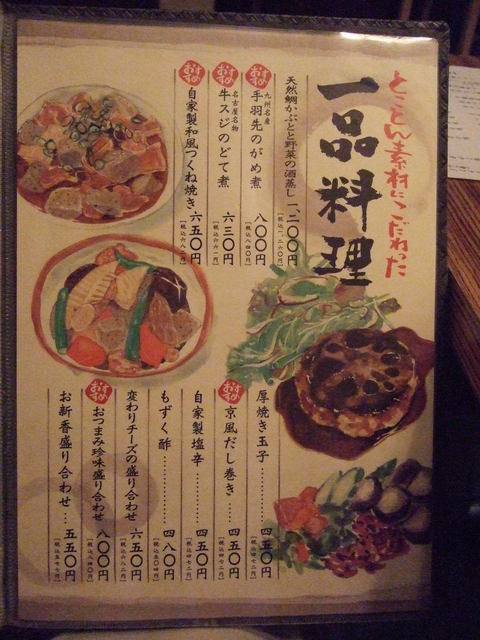 とことん素材にこだわった
一品料理
天然鯛かぶとと野菜の酒蒸し 一、二〇〇円
[税込一、二六〇円]
おすすめ
九州名産
手羽先のがめ煮 八〇〇円
[税込八四〇円]
おすすめ
名古屋名物
牛スジのどて煮 六三〇円
[税込六六一円]
おすすめ
自家製和風つくね焼き 六五〇円
[税込六八二円]
厚焼き玉子 四五〇円
[税込四七二円]
おすすめ
京風だし巻き 四五〇円
[税込四七二円]
自家製塩辛 四五〇円
[税込四七二円]
もずく酢 四八〇円
[税込五〇四円]
変わりチーズの盛り合わせ 六五〇円
[税込六八二円]
おすすめ
おつまみ珍味盛り合わせ 八〇〇円
[税込八四〇円]
お新香盛り合わせ 五五〇円
[税込五七七円]